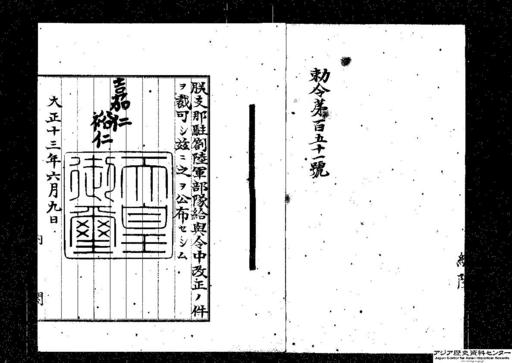 勅令第百五十一號
朕支那駐劄陸軍部隊給與令中改正ノ件
ヲ裁可シ茲ニ之ヲ公布セシム
嘉仁
裕仁
天皇
御璽
大正十三年六月九日
内
閣
アジア歴史資料センター
Japan Center for Asian Historical Records